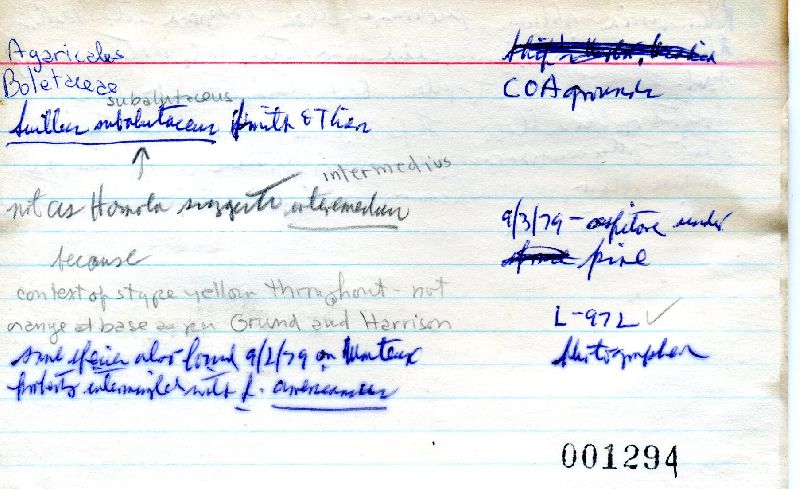 Agaricales
Boletaceae
subalutaceus
Suillus subalutaceus Smith & Thiers
intermedius
not as Homola suggests intermedius
because
context of stype yellow throughout - not
orange at base as per Grund and Harrison
same species also found 9/2/79 on
property intermingled with S. americanus
COA grounds
9/3/79 - cespitose under
pine
L-972 ✓
Photographed
001294